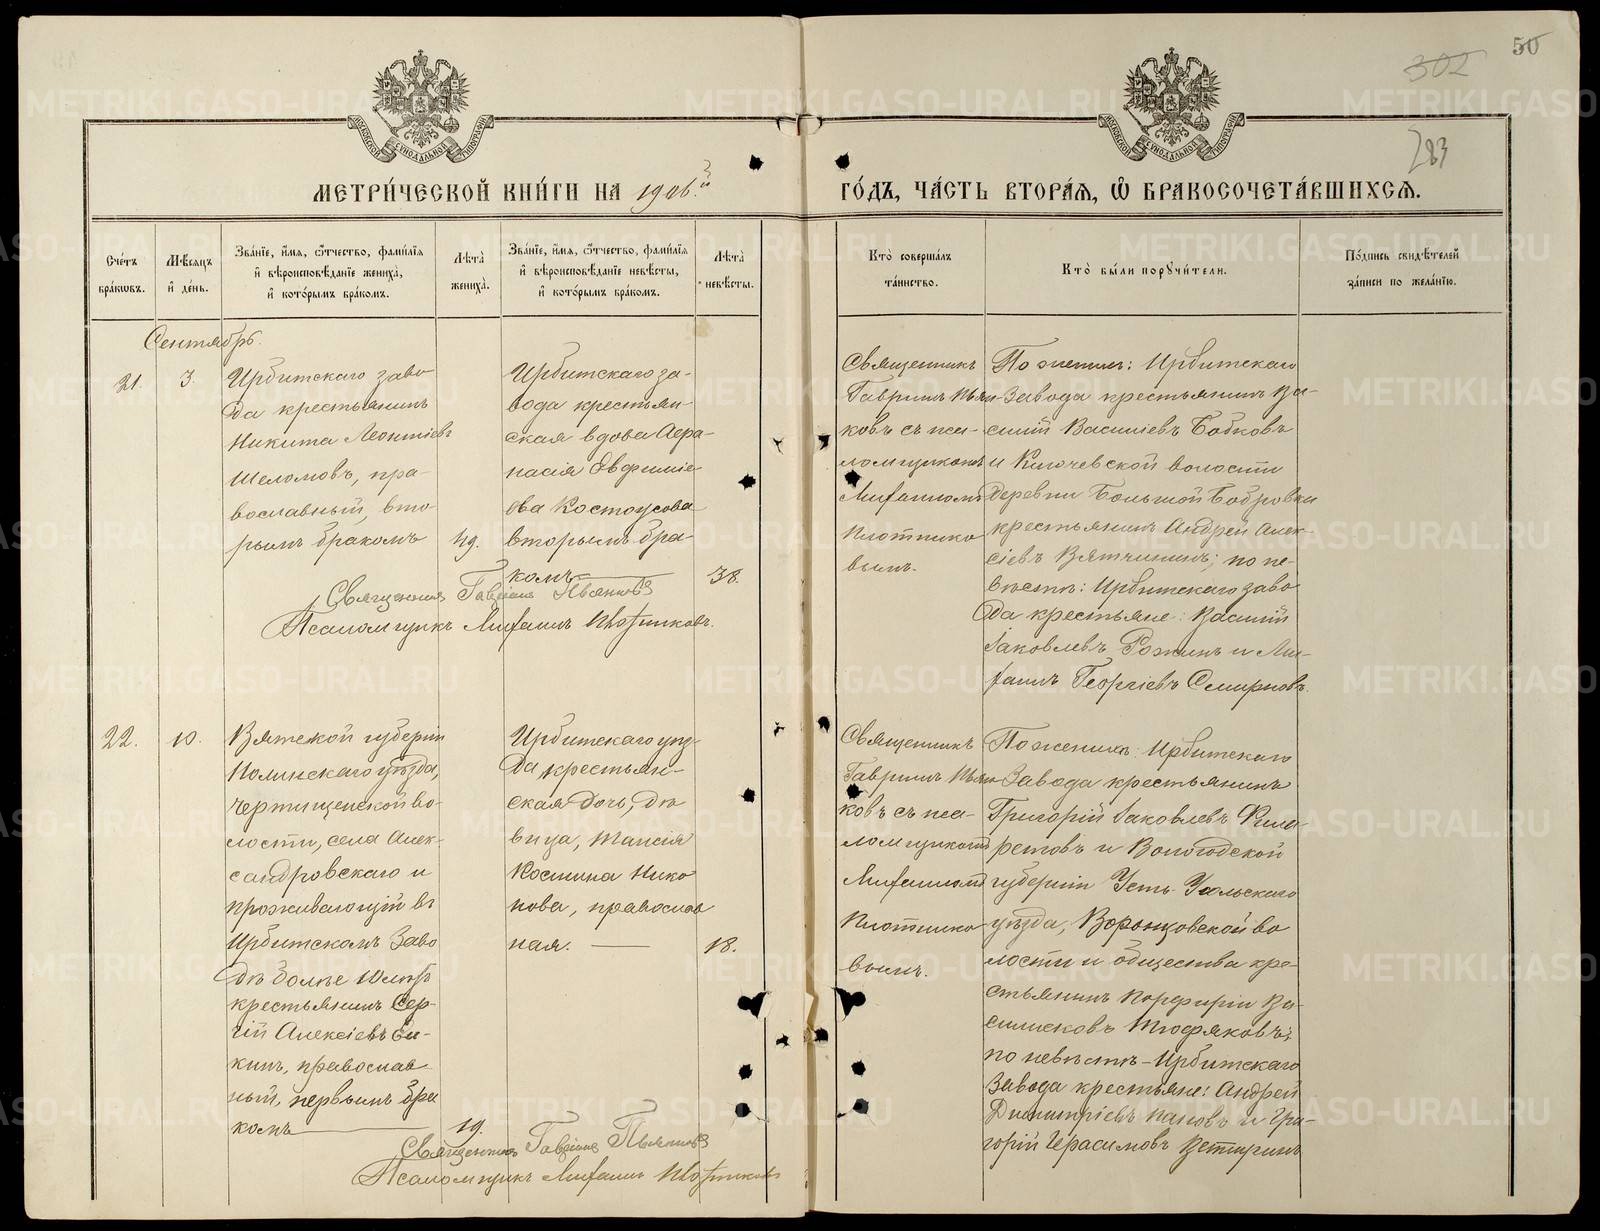 50
302
283
МОСКОВСКОЙ СУНОДАЛЬНОЙ ТИПОГРАФІИ
МОСКОВСКОЙ СУНОДАЛЬНОЙ ТИПОГРАФІИ
МЕТРИ́ЧЕСКОЙ КНИ́ГИ НА 1906й ГО́ДЪ, ЧА́СТЬ ВТОРА́Я, Ѿ БРАКОСОЧЕТА́ВШИХСЯ.
Сче́тъ
бра́кѡвъ.
Мѣ́сяцъ
и҆ де́нь.
Зва́нїе, и҆́мя, ѻ҆́тчество, фами́лїя
и҆ вѣроисповѣ́данїе жениха̀,
и҆ кото́рымъ бра́комъ.
Лѣ́та
жениха̀.
Зва́нїе, и҆́мя, ѻ҆́тчество, фами́лїя
и҆ вѣроисповѣ́данїе невѣ́сты,
и҆ кото́рымъ бра́комъ.
Лѣ́та
невѣ́сты.
Кто̀ соверша́лъ
та́инство.
Кто̀ бы́ли порꙋчи́тели.
По́дпись свидѣ́телей
за́писи по жела́нїю.
Сентябрь.
21.
3.
Ирбитскаго заво
да крестьянинъ
Никита Леонтіевъ
Шеломовъ, пра-
вославный, вто-
рымъ бракомъ
49.
Ирбитскаго за-
вода крестьян-
ская вдова Аѳа-
насія Евфиміе-
ва Костоусова
вторымъ бра-
комъ
38.
Священникъ
Гавріилъ Пьян-
ковъ съ пса-
ломщикомъ
Михаиломъ
Плотнико
вымъ.
По женихѣ: Ирбитскаго
Завода крестьянинъ Ва-
силій Василіевъ Бобковъ
и Ключевской волости
деревни Большой Бобровки
крестьянинъ Андрей Алек-
сіевъ Вятчининъ; по не-
вѣстѣ: Ирбитскаго заво
да крестьяне: Василій
Іаковлевъ Рожинъ и Ми-
хаилъ Георгіевъ Смирновъ.
Священникъ Гавріилъ Пьянковъ
Псаломщикъ Михаилъ Плотниковъ.
22.
10.
Вятской губерніи
Нолинскаго уѣзда,
Чертищевской во-
лости, села Алек-
сандровскаго и
проживающій въ
Ирбитскомъ Заво
дѣ болѣе
крестьянинъ Сер-
гій Алексіевъ
кинъ, православ-
ный, первымъ бра
комъ
19.
Ирбитскаго уѣз-
да крестьян-
ская дочь, дѣ
вица, Таисія
Костина Нико
нова, православ
ная.
18.
Священникъ
Гавріилъ Пьян-
ковъ съ пса-
ломщикомъ
Михаиломъ
Плотнико
вымъ.
По женихѣ: Ирбитскаго
Завода крестьянинъ
Григорій Іаковлевъ Фила-
ретовъ и Вологодской
губерніи Усть-Сысольскаго
уѣзда, Воронцовской во
лости и общества кре-
стьянинъ Порфирій Ва-
силисковъ Тюфяковъ;
по невѣстѣ - Ирбитскаго
Завода крестьяне: Андрей
Димитріевъ Пановъ и Гри-
горій Герасимовъ
Священникъ Гавріилъ Пьянковъ
Псаломщикъ Михаилъ Плотниковъ
METRIKI.GASO-URAL.RU